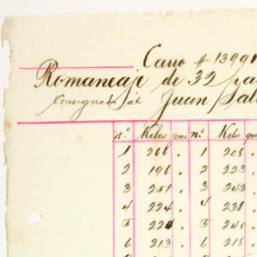 Carro # 1399
Romaneaje de 32 pa
Consignado al Juan Sal
nº Kilos grs nº Kilo
1 266 . 1 208
2 196 . 2 223
3 251 . 3 242
4 224 . 4 238
5 224 . 5 240
6 213 . 6 218